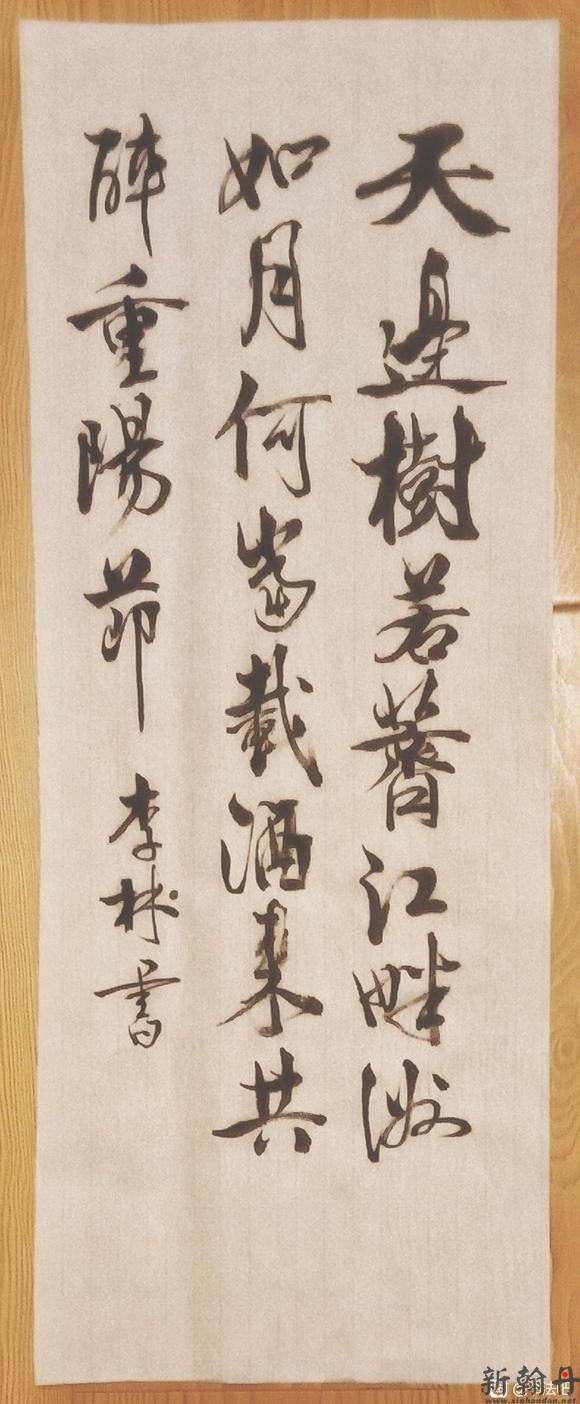 天邊樹若薺江畔洲
如月何當載酒來共
醉重陽節 李林書
新翰丹
www.xinhandan.net